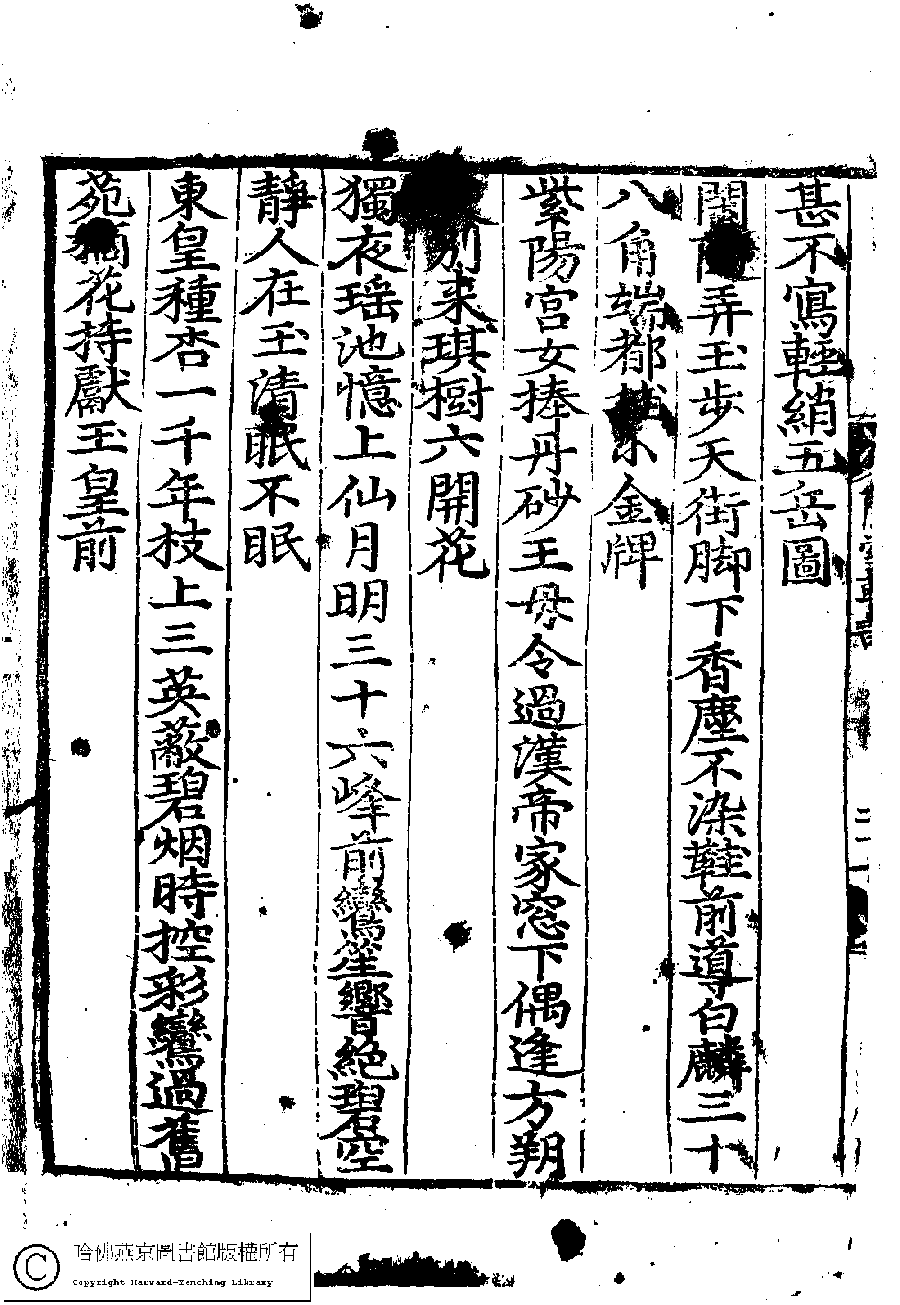 甚不寫輕綃五岳圖
閬 弄玉步天街脚下香塵不染鞋前導白麟三十
八角端都掛小金牌
紫陽宮女捧丹砂王母令過漢帝家窓下偶逢方朔
別来琪樹六開花
獨夜瑶池憶上仙月明三十六峰前鸞笙響絶碧空
靜人在玉淸眠不眠
東皇種杏一千年枝上三英蔽碧烟時控彩鸞過舊
苑摘花持獻玉皇前
二十一
哈佛燕京圖書館版權所有
Copyright Harvard-Yenching Library